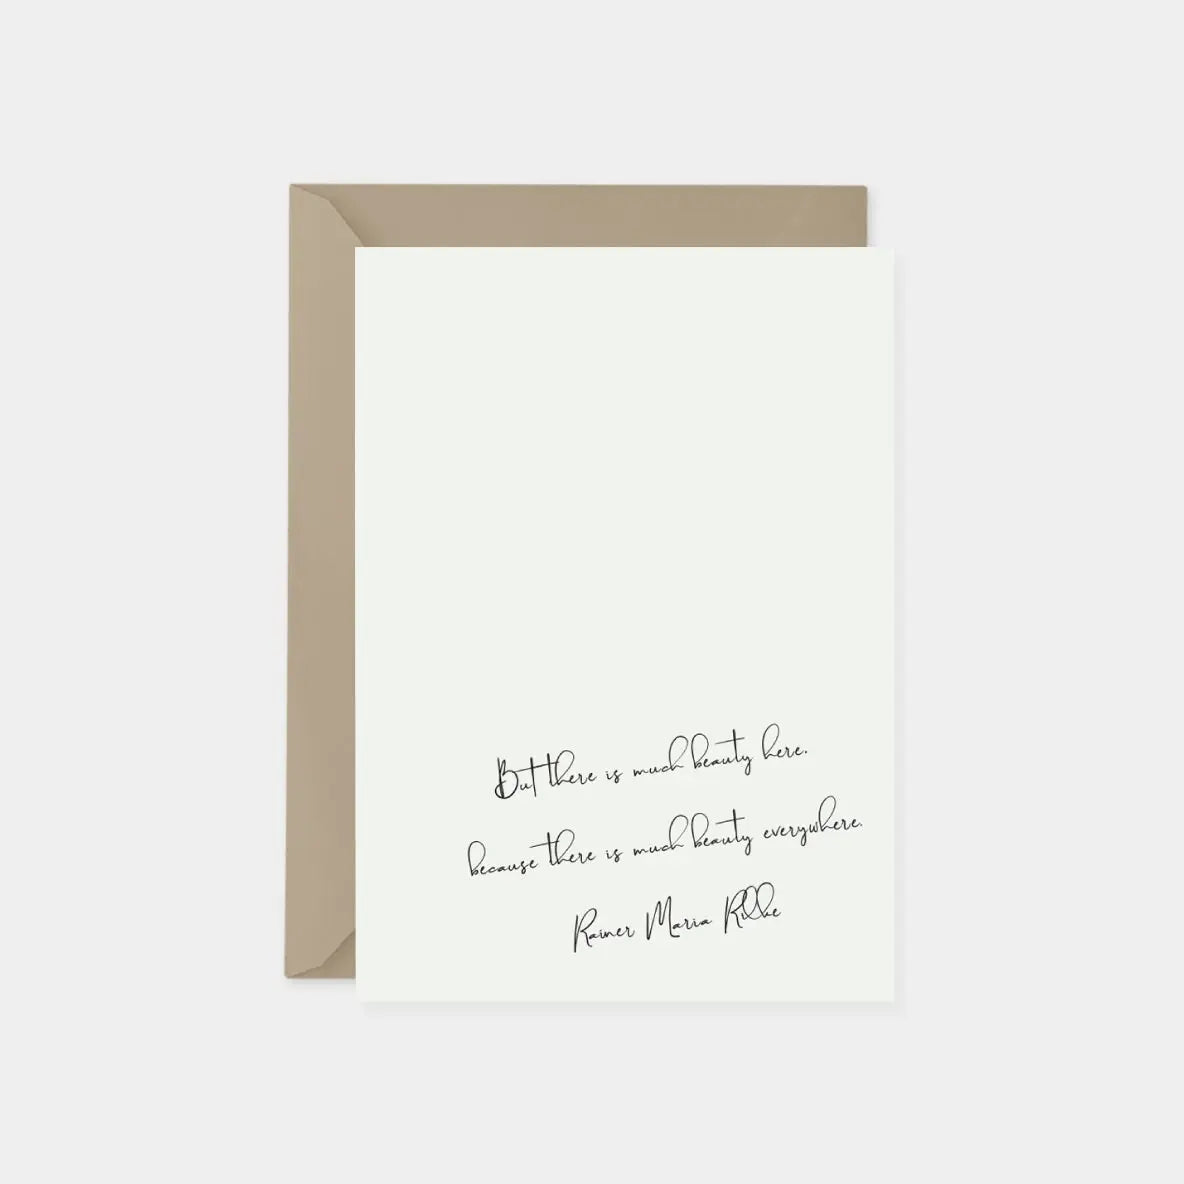 But there is much beauty here.
because there is much beauty everywhere.
Rainer Maria Rilke